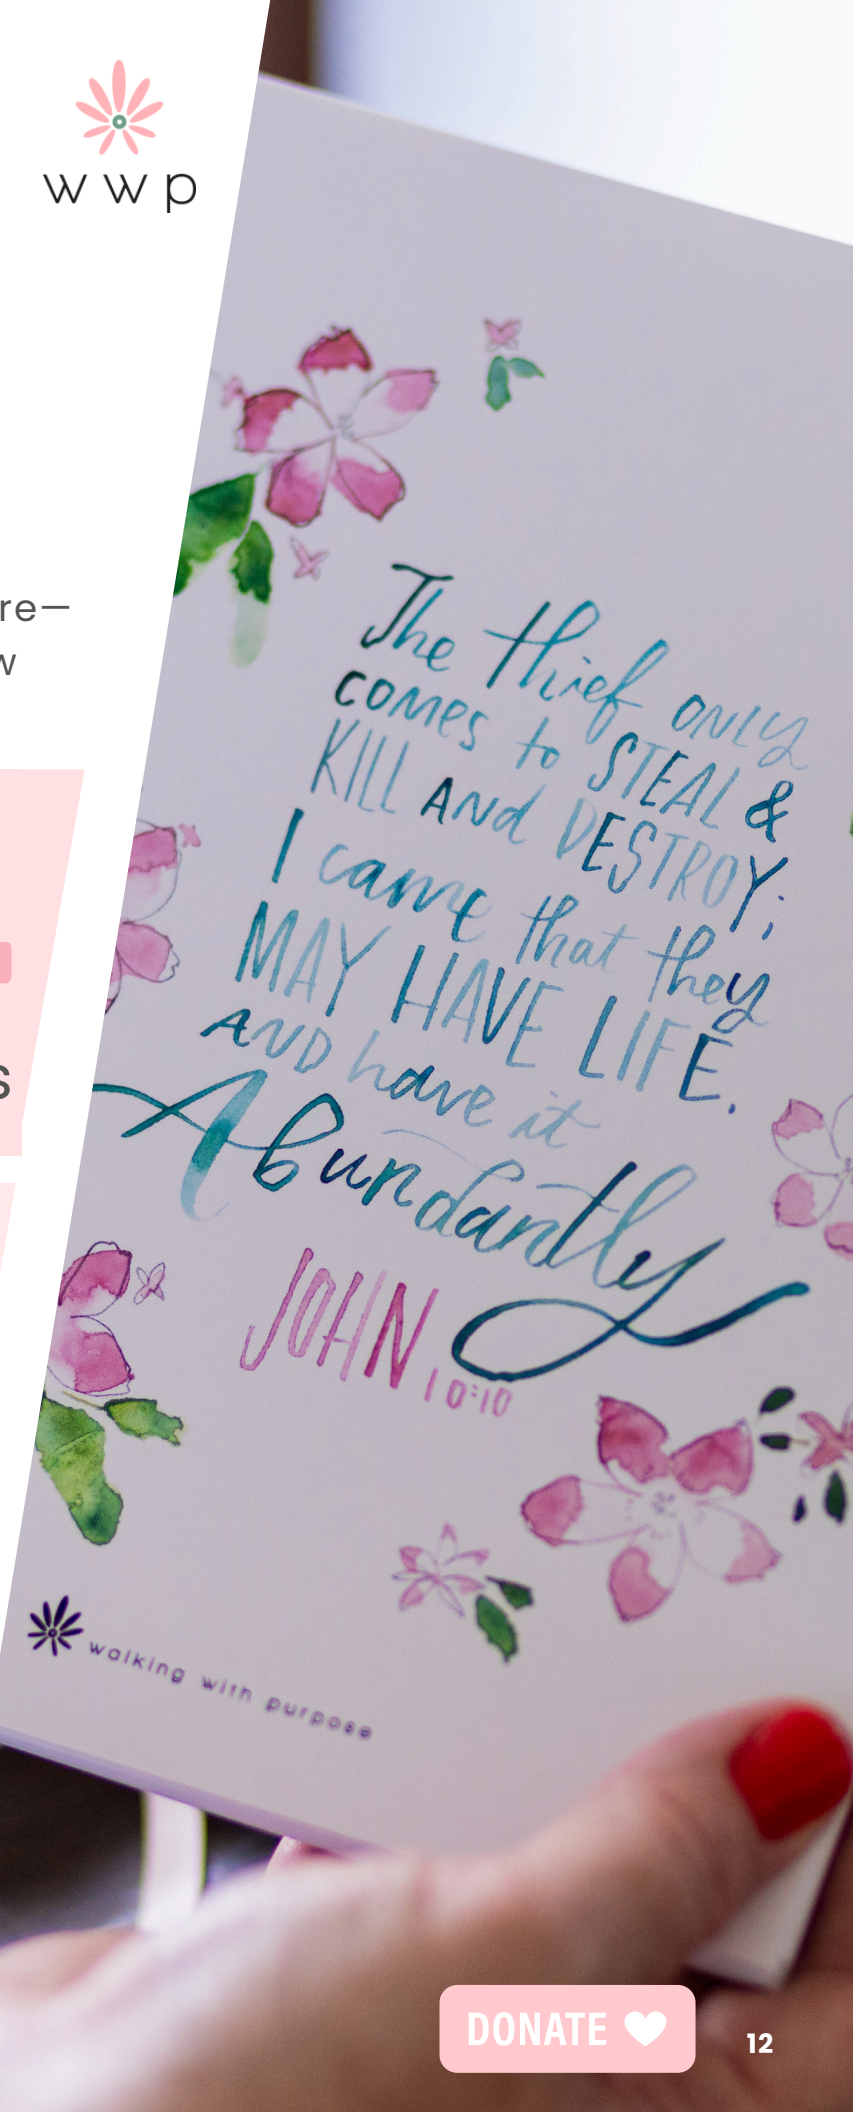 wwp
re—
w
s
The thief only
comes to STEAL &
KILL AND DESTROY;
I came that they
MAY HAVE LIFE.
AND have it
Abundantly
JOHN 10:10
walking with purpose
DONATE
12